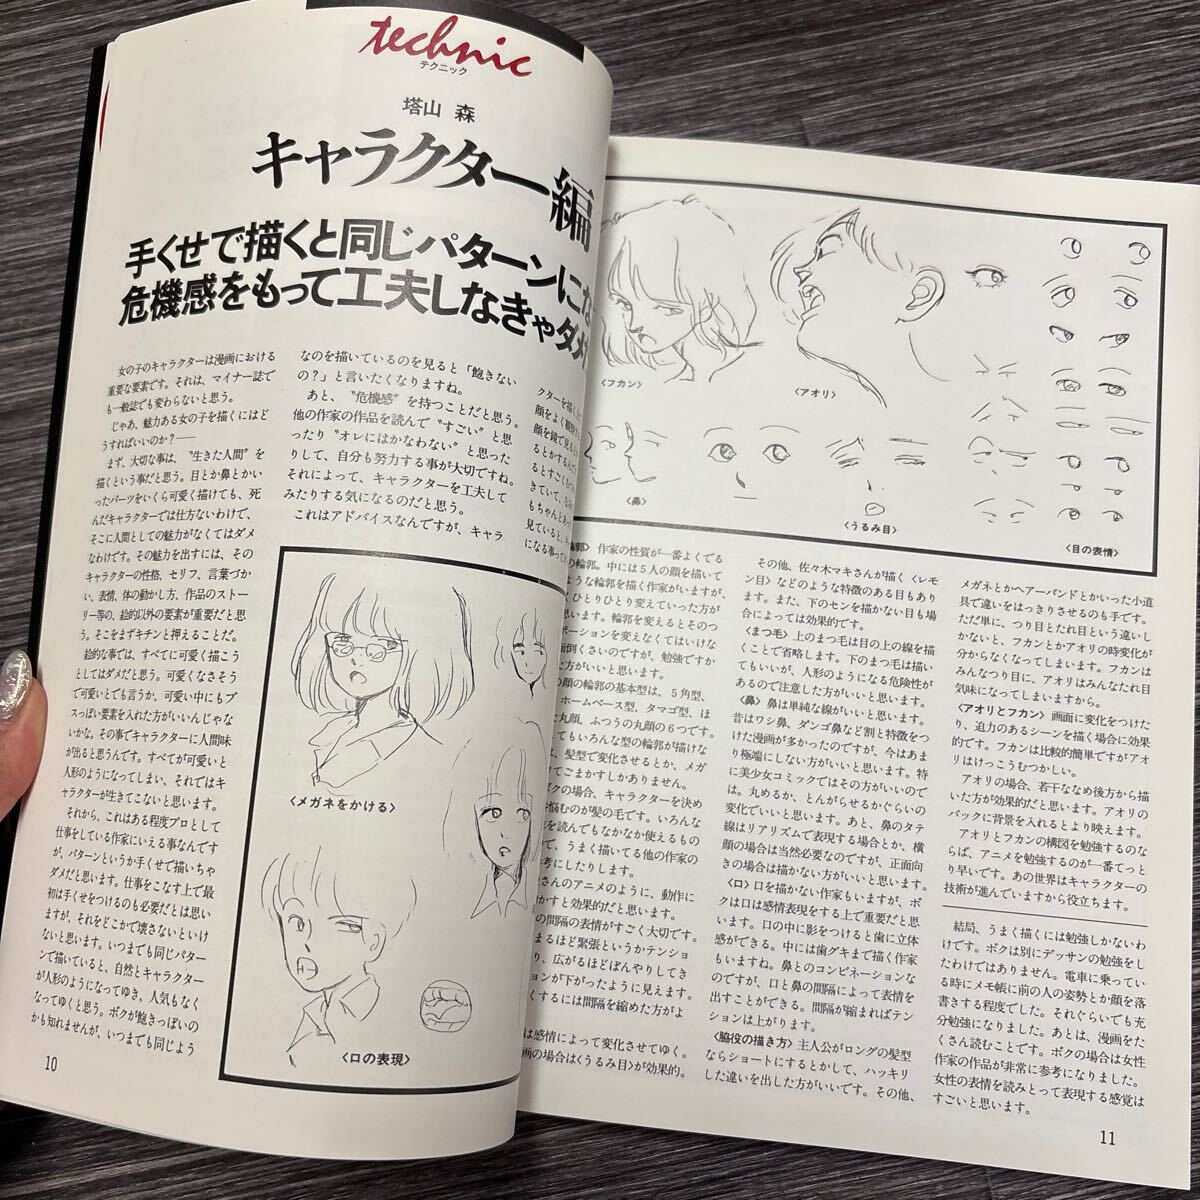 technic
テクニック
塔山 森
キャラクター編
手くせで描くと同じパターンにな
危機感をもって工夫しなきゃダメ
女の子のキャラクターは漫画における
重要な要素です。それは、マイナー誌で
も一般誌でも変わらないと思う。
じゃあ、魅力ある女の子を描くにはど
うすればいいのか?──
まず、大切な事は、〝生きた人間〟を
描くという事だと思う。目とか鼻とかい
ったパーツをいくら可愛く描けても、死
んだキャラクターでは仕方ないわけで、
そこに人間としての魅力がなくてはダメ
なわけです。その魅力を出すには、その
キャラクターの性格、セリフ、言葉づか
い、表情、体の動かし方、作品のストー
リー等の、絵的以外の要素が重要だと思
う。そこをまずキチンと押えることだ。
絵的な事では、すべてに可愛く描こう
としてはダメだと思う。可愛くなさそう
で可愛いとでも言うか、可愛い中にもブ
スっぽい要素を入れた方がいいんじゃな
いかな。その事でキャラクターに人間味
が出ると思うんです。すべてが可愛いと
人形のようになってしまい、それではキ
ャラクターが生きてこないと思います。
それから、これはある程度プロとして
仕事をしている作家にいえる事なんです
が、パターンというか手くせで描いちゃ
ダメだと思います。仕事をこなす上で最
初は手くせをつけるのも必要だとは思い
ますが、それをどこかで壊さないといけ
ないと思います。いつまでも同じパター
ンで描いていると、自然とキャラクター
が人形のようになってゆき、人気もなく
なってゆくと思う。ボクが飽きっぽいの
かも知れませんが、いつまでも同じよう
なのを描いているのを見ると「飽きない
の?」と言いたくなりますね。
あと、〝危機感〟を持つことだと思う。
他の作家の作品を読んで〝すごい〟と思
ったり〝オレにはかなわない〟と思った
りして、自分も努力する事が大切ですね。
それによって、キャラクターを工夫して
みたりする気になるのだと思う。
これはアドバイスなんですが、キャラ
クターを描く
顔をよく観
顔を鏡で見る
るとかするん
るとすごくもつ
きていて、なん
もちゃんとあっ
見ていると、キ
になる事って
〈メガネをかける〉
〈口の表現〉
10
〈フカン〉
〈アオリ〉
〈鼻〉
〈うるみ目〉
〈目の表情〉
輪郭〉 作家の性質が一番よくでる
の輪郭。中には5人の顔を描いて
ような輪郭を描く作家がいますが、
くひとりひとり変えていった方が
思います。輪郭を変えるとそのつ
ポーションを変えなくてはいけな
面倒くさいのですが、勉強ですか
た方がいいと思います。
の顔の輪郭の基本型は、5角型、
ホームベース型、タマゴ型、ほ
た丸顔、ふつうの丸顔の6つです。
てもいろんな型の輪郭が描けな
は、髪型で変化させるとか、メガ
けてごまかすしかありません。
ボクの場合、キャラクターを決め
悩むのが髪の毛です。いろんな
を読んでもなかなか使えるもの
で、うまく描いてる他の作家の
考にしたりします。
さんのアニメのように、動作に
かすと効果的だと思います。
の間隔の表情がすごく大切です。
まるほど緊張というかテンショ
り、広がるほどぼんやりしてき
ョンが下がったように見えます。
くするには間隔を縮めた方がよ
は感情によって変化させてゆく。
画の場合は〈うるみ目〉が効果的。
その他、佐々木マキさんが描く〈レモ
ン目〉などのような特徴のある目もあり
ます。また、下のセンを描かない目も場
合によっては効果的です。
〈まつ毛〉上のまつ毛は目の上の線を描
くことで省略します。下のまつ毛は描い
てもいいが、人形のようになる危険性が
あるので注意した方がいいと思います。
〈鼻〉鼻は単純な線がいいと思います。
昔はワシ鼻、ダンゴ鼻など割と特徴をつ
けた漫画が多かったのですが、今はあま
り極端にしない方がいいと思います。特
に美少女コミックではその方がいいので
は。丸めるか、とんがらせるかぐらいの
変化でいいと思います。あと、鼻のタテ
線はリアリズムで表現する場合とか、横
顔の場合は当然必要なのですが、正面向
きの場合は描かない方がいいと思います。
〈口〉口を描かない作家もいますが、ボ
クは口は感情表現をする上で重要だと思
います。口の中に影をつけると歯に立体
感ができる。中には歯グキまで描く作家
もいますね。鼻とのコンビネーションな
のですが、口と鼻の間隔によって表情を
出すことができる。間隔が縮まればテン
ションは上がります。
〈脇役の描き方〉主人公がロングの髪型
ならショートにするとかして、ハッキリ
した違いを出した方がいいです。その他、
メガネとかヘアーバンドとかいった小道
具で違いをはっきりさせるのも手です。
ただ単に、つり目とたれ目という違いし
かないと、フカンとかアオリの時変化が
分からなくなってしまいます。フカンは
みんなつり目に、アオリはみんなたれ目
気味になってしまいますから。
〈アオリとフカン〉画面に変化をつけた
り、迫力のあるシーンを描く場合に効果
的です。フカンは比較的簡単ですがアオ
リはけっこうむつかしい。
アオリの場合、若干ななめ後方から描
いた方が効果的だと思います。アオリの
バックに背景を入れるとより映えます。
アオリとフカンの構図を勉強するのな
らば、アニメを勉強するのが一番てっと
り早いです。あの世界はキャラクターの
技術が進んでいますから役立ちます。
結局、うまく描くには勉強しかないわ
けです。ボクは別にデッサンの勉強をし
たわけではありません。電車に乗ってい
る時にメモ帳に前の人の姿勢とか顔を落
書きする程度でした。それぐらいでも充
分勉強になりました。あとは、漫画をた
くさん読むことです。ボクの場合は女性
作家の作品が非常に参考になりました。
女性の表情を読みとって表現する感覚は
すごいと思います。
11